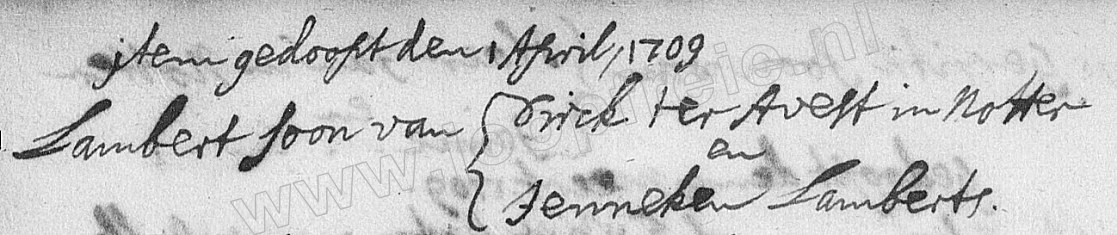 jtem gedoopt den 1 April, 1709
Lambert soon van { Dirck ter Avest in Notter
en
Jenneken Lamberts.